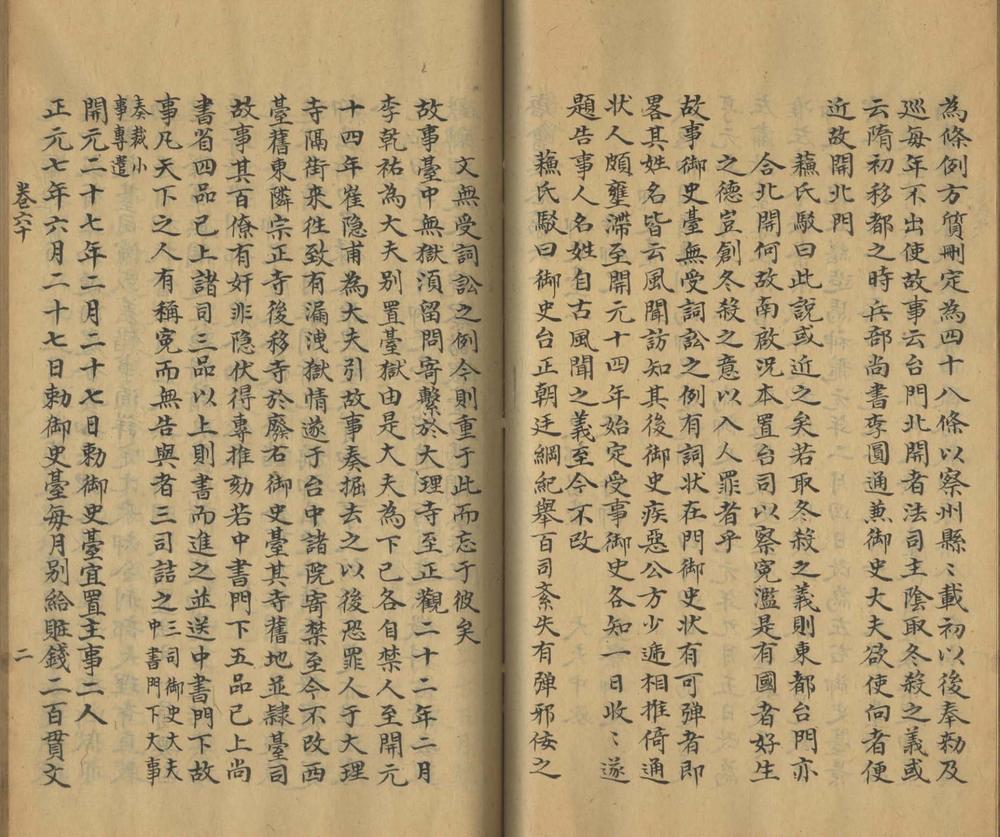 為條例方質刪定為四十八條以察州縣〻載初以後奉勑及
巡每年不出使故事云台門北開者法司主陰取冬殺之義或
云隋初移都之時兵部尚書李圓通兼御史大夫欲使向者便
近故開北門
蘓氏駁曰此說或近之矣若取冬殺之義則東都台門亦
合北開何故南啟况本置台司以察寃濫是有國者好生
之德豈創冬殺之意以入人罪者乎
故事御史臺無受詞訟之例有詞狀在門御史狀有可彈者即
畧其姓名皆云風聞訪知其後御史疾惡公方少逓相推倚通
狀人頗壅滯至開元十四年始定受事御史各知一日收〻遂
題告事人名姓自古風聞之義至今不改
蘓氏駁曰御史台正朝廷綱紀舉百司紊失有弹邪佞之
文無受詞訟之例今則重于此而忘于彼矣
故事臺中無獄湏留問寄繫於大理寺至正觀二十二年二月
李乾祐為大夫别置臺獄由是大夫為下已各自禁人至開元
十四年崔隐甫為大夫引故事奏掘去之以後恐罪人于大理
寺隔街来往致有漏洩獄情遂于台中諸院寄禁至今不改西
臺舊東隣宗正寺後移寺於廢右御史臺其寺舊地並隷臺司
故事其百僚有奸非隐伏得專推劾若中書門下五品已上尚
書省四品已上諸司三品以上則書而進之並送中書門下故
事凡天下之人有稱寃而無告與者三司詰之三司御史大夫中書門下大事
奏裁小事專遣
開元二十七年二月二十七日勅御史臺宜置主事二人
正元七年六月二十七日勅御史臺每月别給賍錢二百貫文
卷六十 二